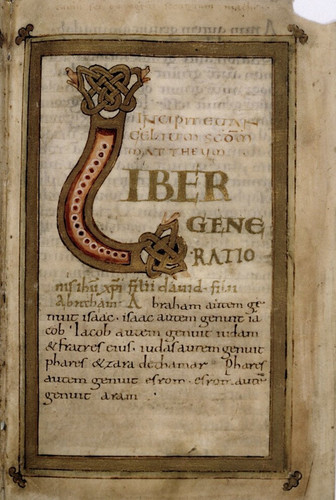 INCIPIT EVAN
GELIUM SCDM
MATTHEUM
LIBER
GENE
RATIO
nis ihu xpi filii david · filii
Abraham · Abraham autem ge
nuit isaac · isaac autem genuit ia
cob · Iacob autem genuit iudam
& fratres eius · iudas autem genuit
phares & zara de thamar · Phares
autem genuit esrom · esrom aute
genuit aram ·